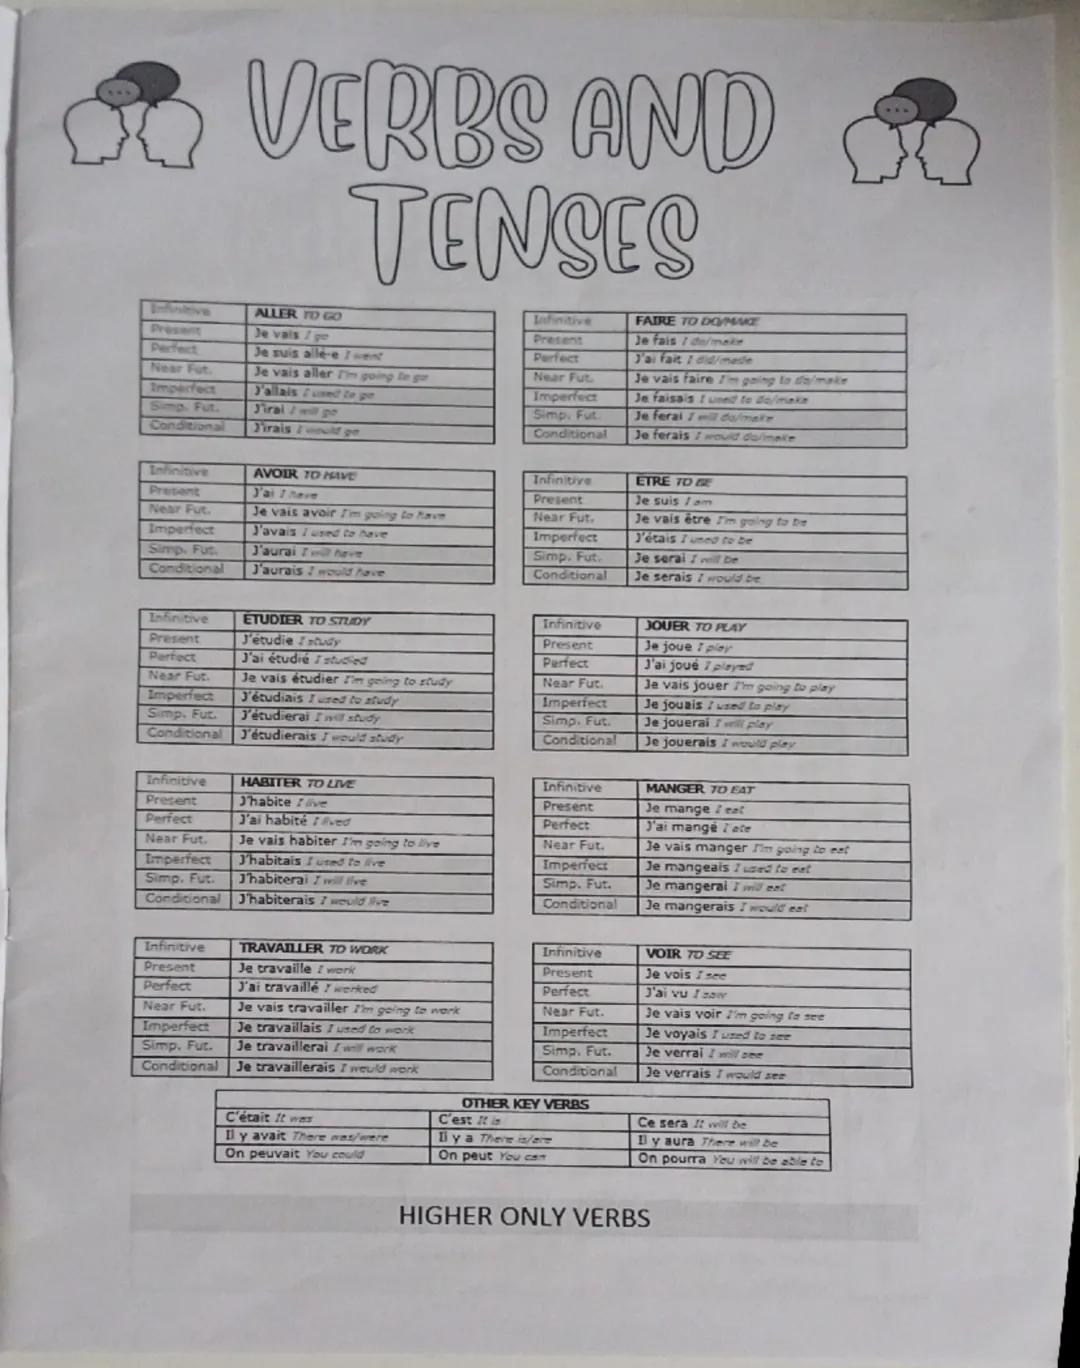 VERBS AND
TENSES
Infinitive ALLER TO GO
Present Je vais I go
Perfect Je suis allé-e I went
Near Fut. Je vais aller I'm going to go
Imperfect J'allais I used to go
Simp. Fut. J'irai I will go
Conditional J'irais I would go
Infinitive FAIRE TO DO/MAKE
Present Je fais I do/make
Perfect J'ai fait I did/made
Near Fut. Je vais faire I'm going to do/make
Imperfect Je faisais I used to do/make
Simp. Fut. Je ferai I will do/make
Conditional Je ferais I would do/make
Infinitive AVOIR TO HAVE
Present J'ai I have
Near Fut. Je vais avoir I'm going to have
Imperfect J'avais I used to have
Simp. Fut. J'aurai I will have
Conditional J'aurais I would have
Infinitive ETRE TO BE
Present Je suis I am
Near Fut. Je vais être I'm going to be
Imperfect J'étais I used to be
Simp. Fut. Je serai I will be
Conditional Je serais I would be
Infinitive ETUDIER TO STUDY
Present J'étudie I study
Perfect J'ai étudié I studied
Near Fut. Je vais étudier I'm going to study
Imperfect J'étudiais I used to study
Simp. Fut. J'étudierai I will study
Conditional J'étudierais I would study
Infinitive JOUER TO PLAY
Present Je joue I play
Perfect J'ai joué I played
Near Fut. Je vais jouer I'm going to play
Imperfect Je jouais I used to play
Simp. Fut. Je jouerai I will play
Conditional Je jouerais I would play
Infinitive HABITER TO LIVE
Present J'habite I live
Perfect J'ai habité I lived
Near Fut. Je vais habiter I'm going to live
Imperfect J'habitais I used to live
Simp. Fut. J'habiterai I will live
Conditional J'habiterais I would live
Infinitive MANGER TO EAT
Present Je mange I eat
Perfect J'ai mangé I ate
Near Fut. Je vais manger I'm going to eat
Imperfect Je mangeais I used to eat
Simp. Fut. Je mangerai I will eat
Conditional Je mangerais I would eat
Infinitive TRAVAILLER TO WORK
Present Je travaille I work
Perfect J'ai travaillé I worked
Near Fut. Je vais travailler I'm going to work
Imperfect Je travaillais I used to work
Simp. Fut. Je travaillerai I will work
Conditional Je travaillerais I would work
Infinitive VOIR TO SEE
Present Je vois I see
Perfect J'ai vu I saw
Near Fut. Je vais voir I'm going to see
Imperfect Je voyais I used to see
Simp. Fut. Je verrai I will see
Conditional Je verrais I would see
OTHER KEY VERBS
C'était It was C'est It is Ce sera It will be
Il y avait There was/were Il y a There is/are Il y aura There will be
On peuvait You could On peut You can On pourra You will be able to
HIGHER ONLY VERBS